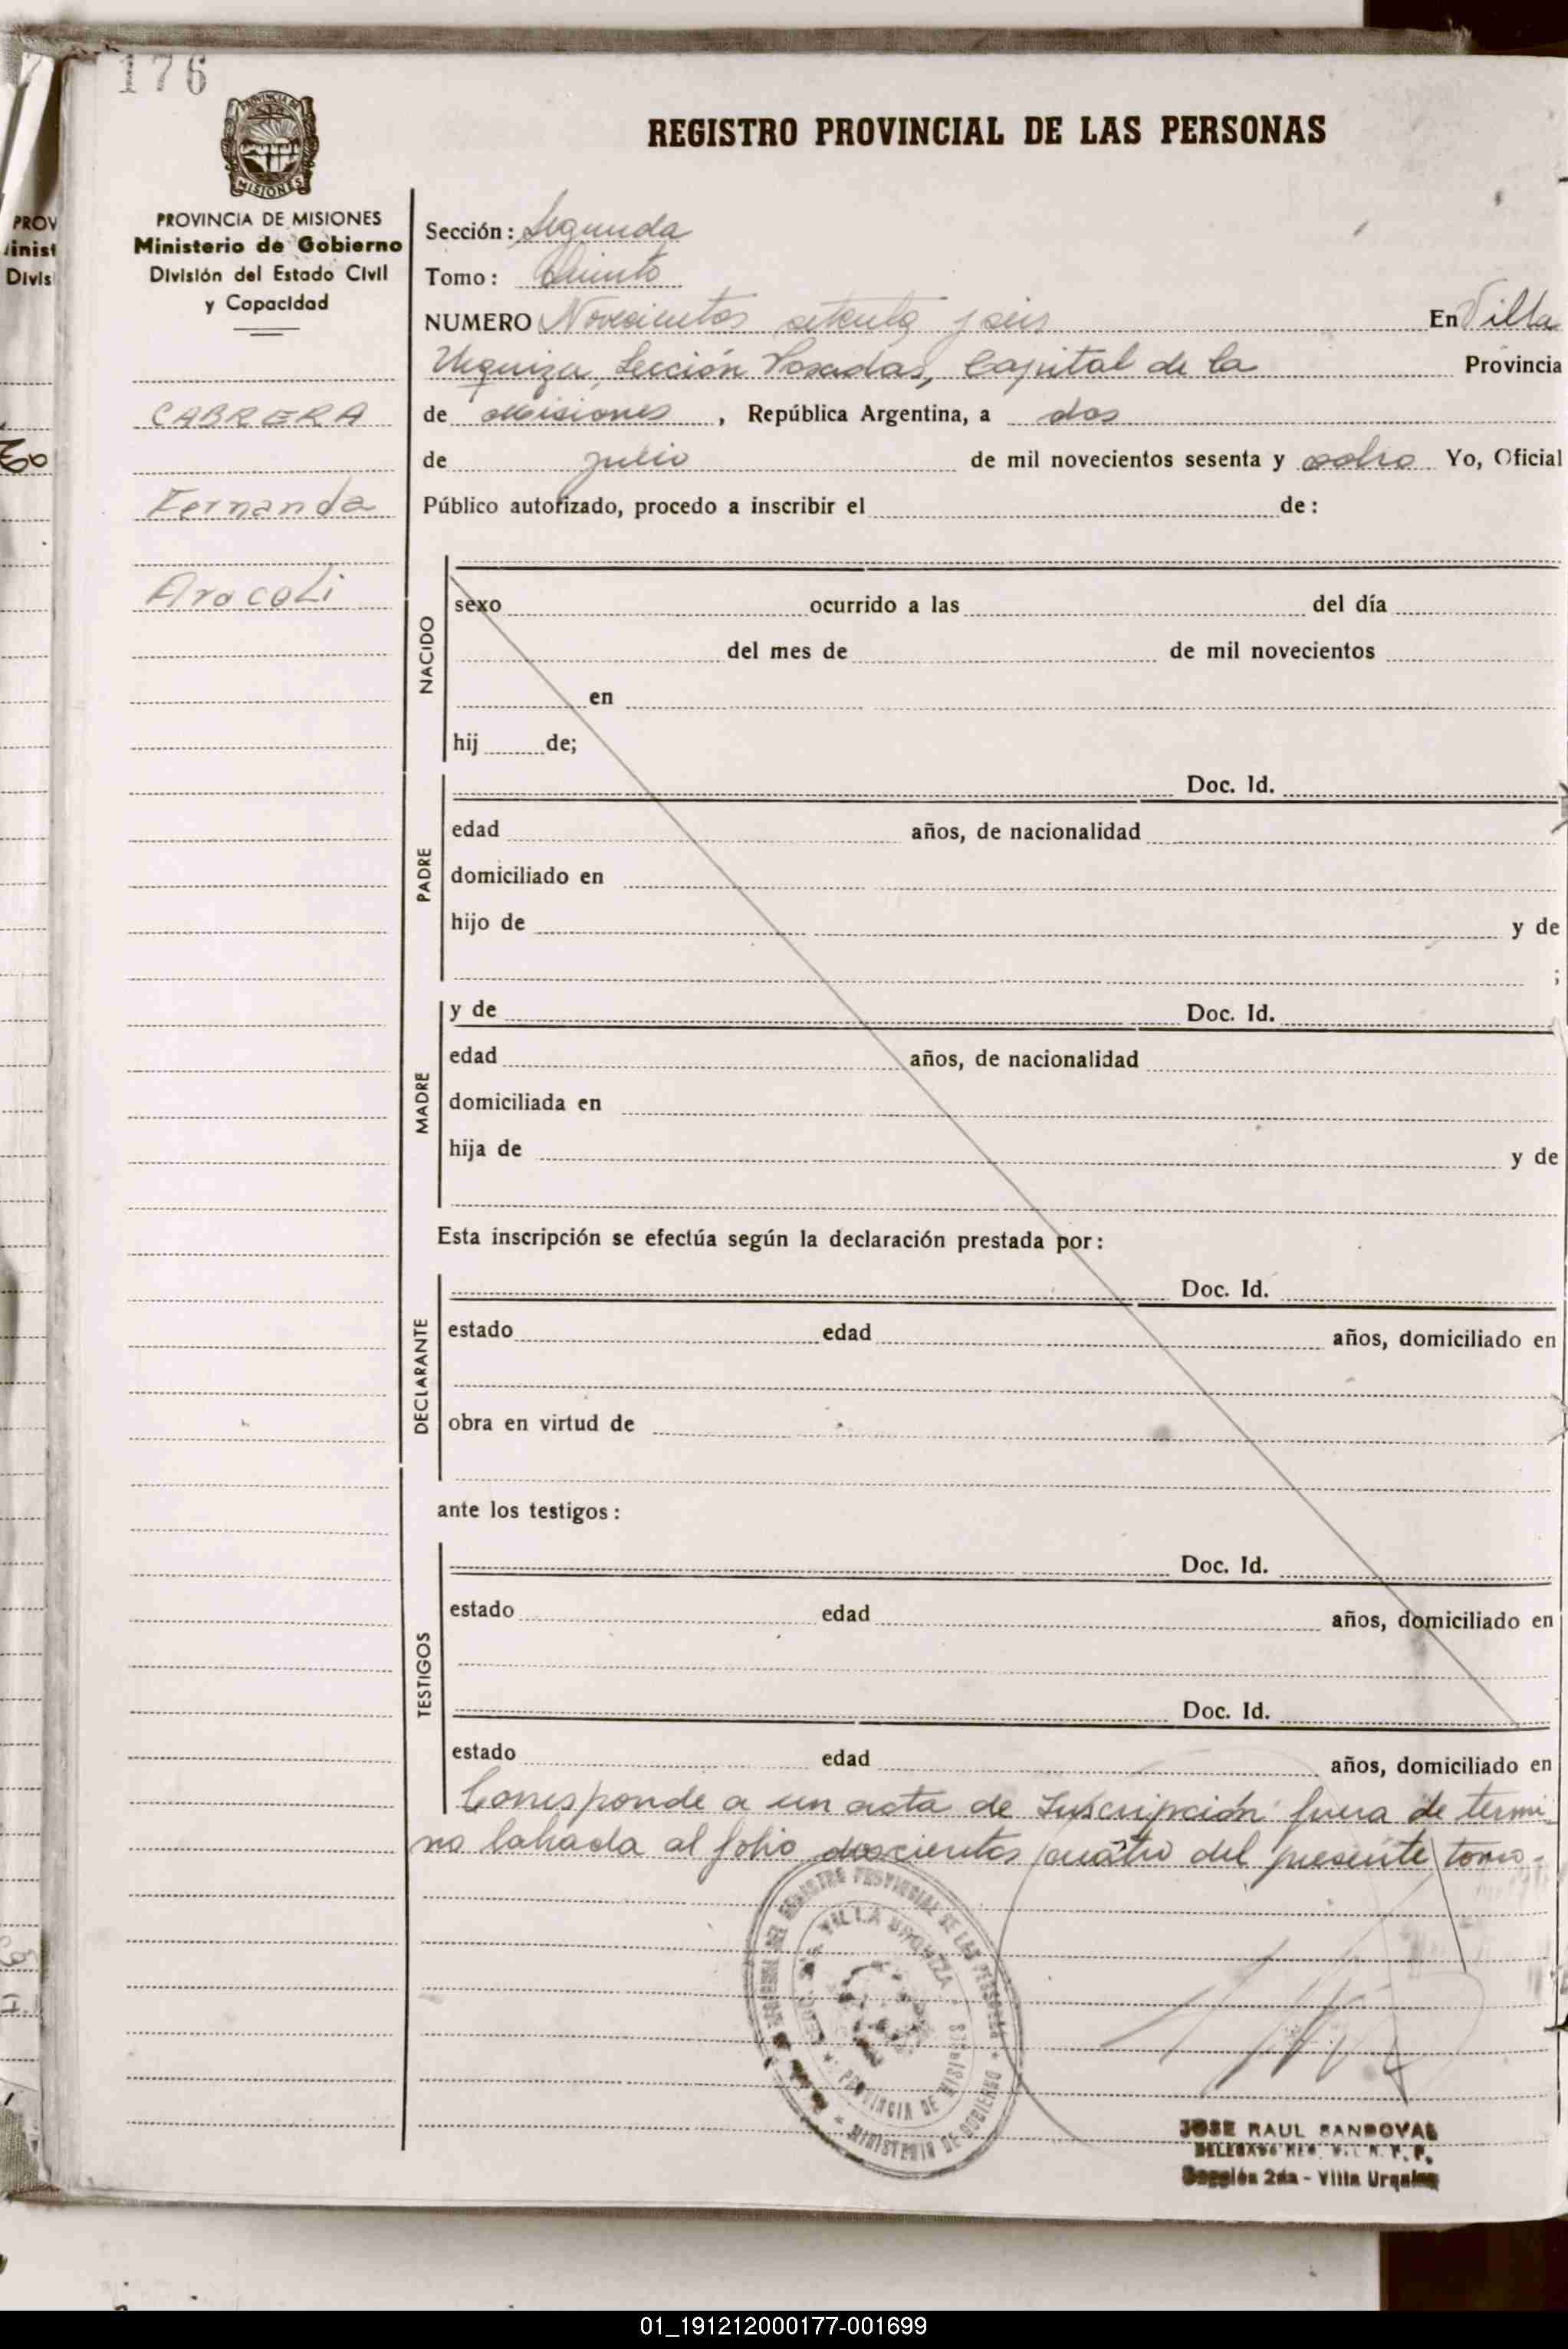 176
REGISTRO PROVINCIAL DE LAS PERSONAS
PROVINCIA DE MISIONES
Ministerio de Gobierno
División del Estado Civil
y Capacidad
PROV
Minist
Divis
CABRERA
Fernanda
Araceli
Sección: Segunda
Tomo: Quinto
NUMERO Novecientos setenta y seis En Villa
Urquiza, Sección Posadas, Capital de la Provincia
de Misiones, República Argentina, a dos
de julio de mil novecientos sesenta y ocho Yo, Oficial
Público autorizado, procedo a inscribir el de:
NACIDO
sexo ocurrido a las del día
del mes de de mil novecientos
en
hij de;
PADRE
Doc. Id.
edad años, de nacionalidad
domiciliado en
hijo de y de
;
MADRE
y de Doc. Id.
edad años, de nacionalidad
domiciliada en
hija de y de
Esta inscripción se efectúa según la declaración prestada por:
DECLARANTE
Doc. Id.
estado edad años, domiciliado en
obra en virtud de
ante los testigos:
TESTIGOS
Doc. Id.
estado edad años, domiciliado en
Doc. Id.
estado edad años, domiciliado en
Corresponde a un acta de Inscripción fuera de termi
no labrada al folio doscientos cuatro del presente tomo.-
REGISTRO PROVINCIAL DE LAS PERSONAS
VILLA URQUIZA
PROVINCIA DE MISIONES
MINISTERIO DE GOBIERNO
JOSE RAUL SANDOVAL
Sección 2da - Villa Urquiza
01_191212000177-001699